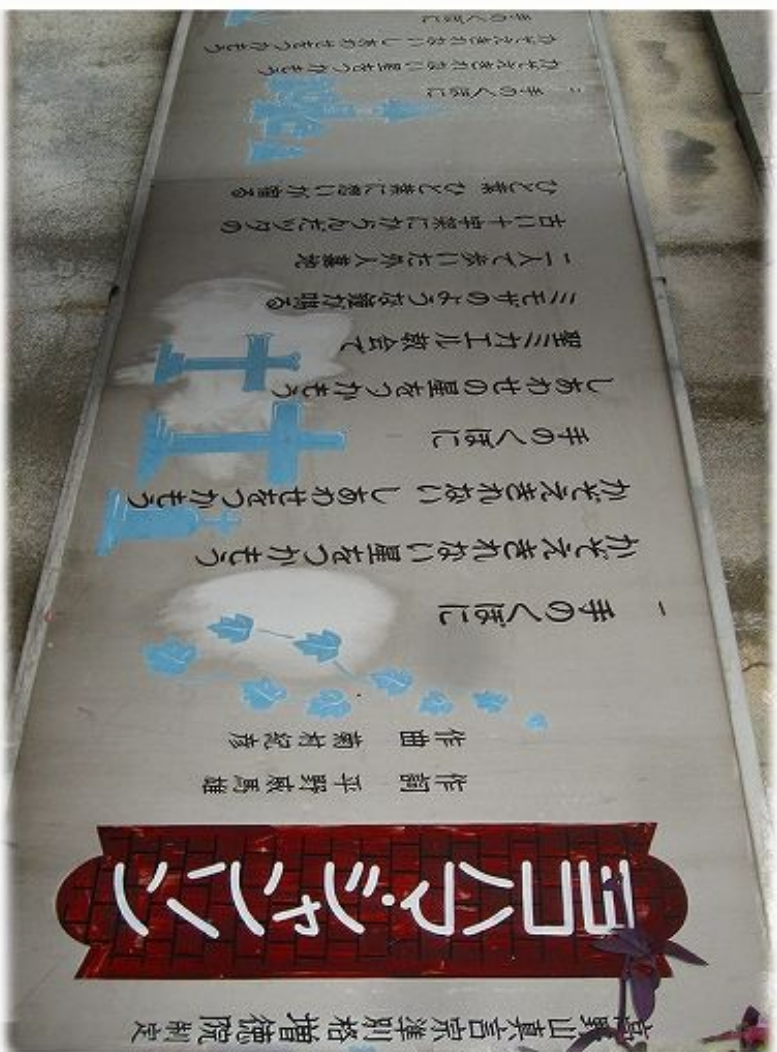 高野山真言宗準別格増徳院制定
ヨコハマ・シャンソン
作詞 平野威馬雄
作曲 菊村紀彦
一 手のくぼに
かぞえきれない星をつかもう
かぞえきれない しあわせをつかもう
手のくぼに
しあわせの星をつかもう
聖ミカエル教会で
ミモザのような鐘が鳴る
二人で歩いた外人墓地
古い十字架にからんだツタの
ひと葉 ひと葉に想いが宿る
二 手のくぼに
かぞえきれない星をつかもう
かぞえきれない しあわせをつかもう
手のくぼに